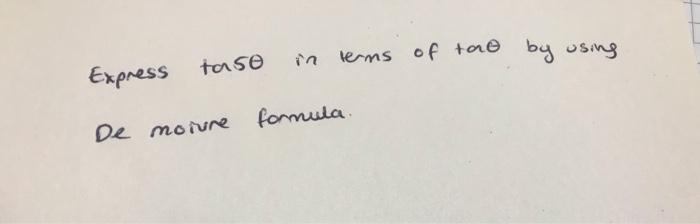 Express tan5θ in terms of tanθ by using
De moivre formula.